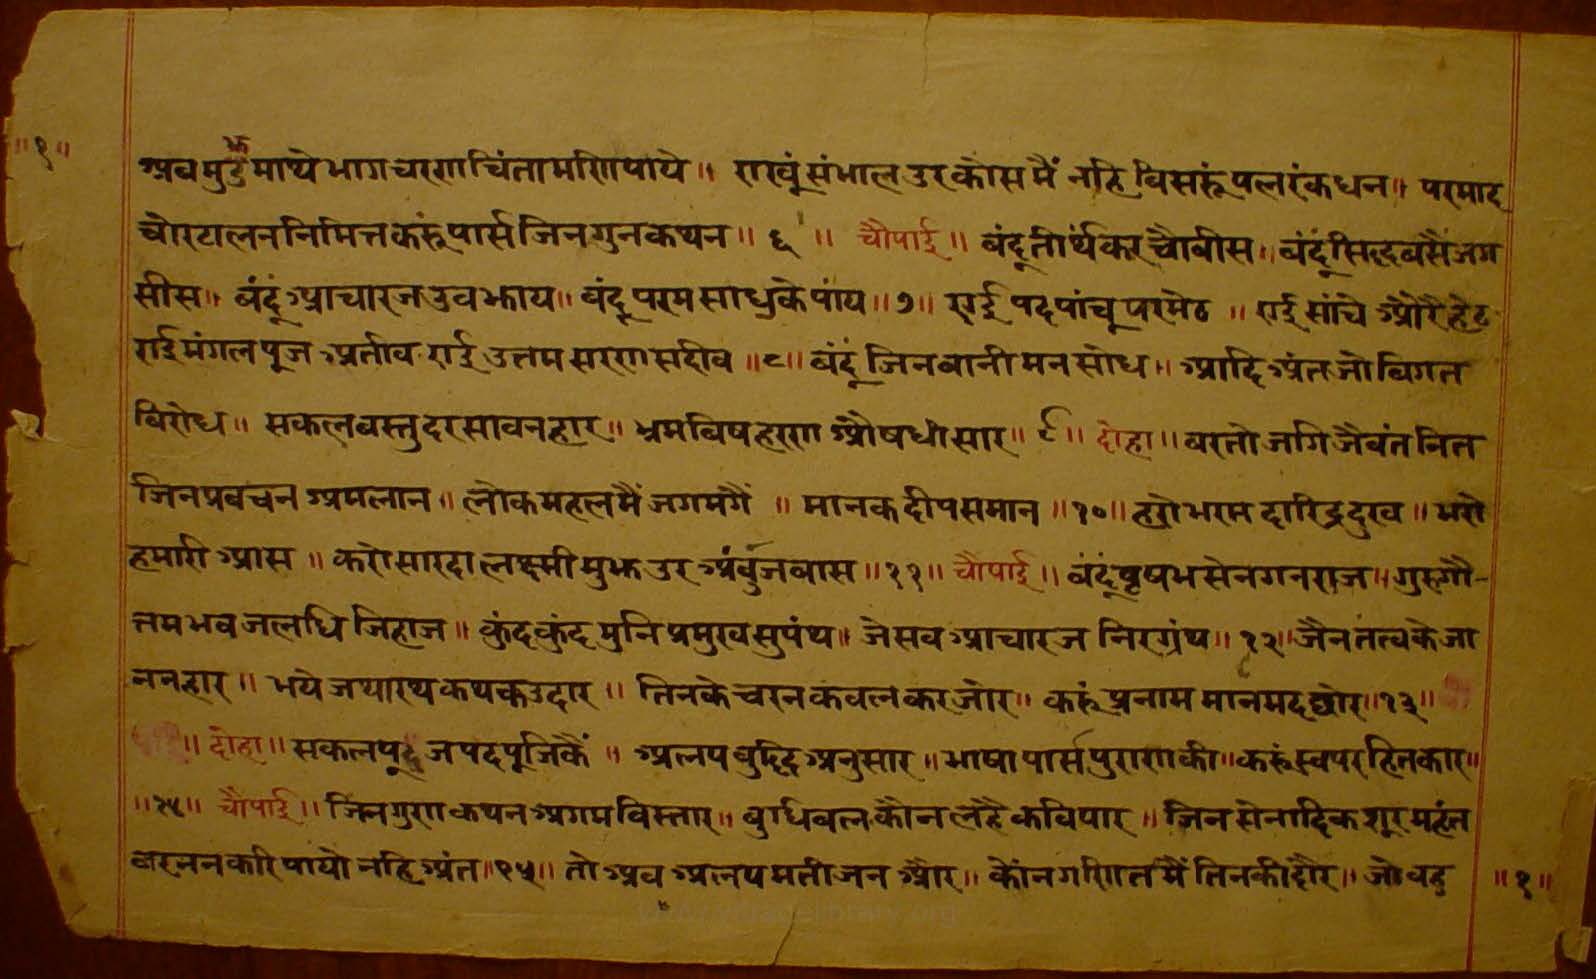 ॥१॥
अब मुझ माथे भाग चरण चिंतामणि पाये॥ राखूं संभाल उर कोस मैं नहि विसरूं पल रंक धन॥ परमाद
चोर टालन निमित्त करूं पार्स जिन गुन कथन॥ ६॥ चौपाई॥ बंदू तीर्थंकर चौबीस॥ बंदूं सिद्ध बसैं जग
सीस॥ बंदूं आचारज उवझाय॥ बंदू परम साधु के पांय॥७॥ एई पद पांचू परमेठ॥ एई सांचे और हेठ
एई मंगल पूज अतीव एई उत्तम सरण सदीव॥८॥ बंदूं जिनबानी मन सोध॥ आदि अंत जो विगत
विरोध॥ सकल वस्तु दरसावनहार॥ भ्रम विष हरण औषधी सार॥ ९॥ दोहा॥ वरतो जगि जैवंत नित
जिन प्रवचन अमलान॥ लोक महल मैं जगमगैं॥ मानक दीप समान॥१०॥ हरो भरम दारिद्र दुख॥ भरो
हमारी आस॥ करो सारदा लक्ष्मी मुझ उर अंबुज वास॥११॥ चौपाई॥ बंदूं वृषभसेन गनराज॥ गुरु गौ-
त्तम भव जलधि जिहाज॥ कुंदकुंद मुनि प्रमुख सुपंथ॥ जे सब आचारज निरग्रंथ॥ १२॥ जैन तत्व के जा
ननहार॥ भये जथारथ कथक उदार॥ तिनके चरन कंवल कर जोर॥ करूं प्रनाम मान मद छोर॥१३॥
॥ दोहा॥ सकल पूज पद पूजिकैं॥ अलप बुद्धि अनुसार॥ भाषा पार्स पुराण की॥ करूं स्वपर हितकार॥
॥१४॥ चौपाई॥ जिन गुण कथन अगम विस्तार॥ बुधि बल कौन लहै कवि पार॥ जिनसेनादिक शूर महंत
बरनन करि पायो नहि अंत॥१५॥ तो अब अलपमती जन और॥ कौंन गणित मैं तिनकी दौर॥ जो बहु
॥१॥